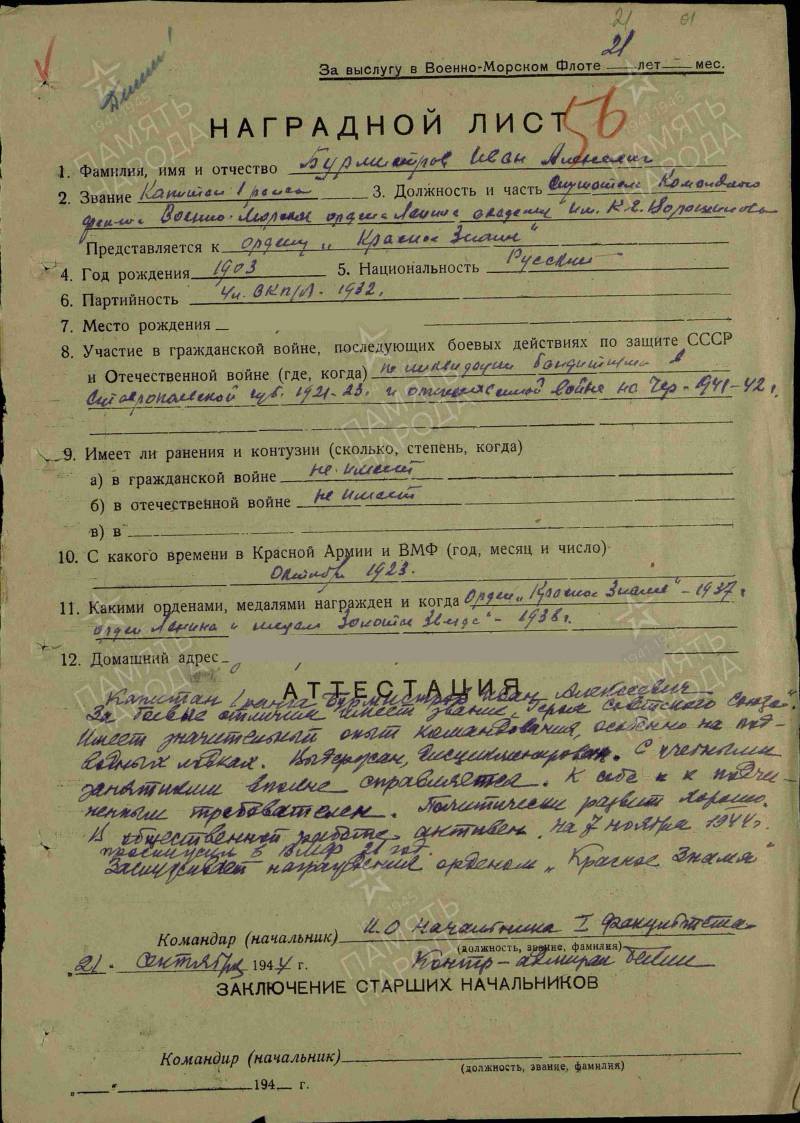 21 01
За выслугу в Военно-Морском Флоте 21 лет мес.
НАГРАДНОЙ ЛИСТ 56
1. Фамилия, имя и отчество Бурмистров Иван Алексеевич
2. Звание Капитан 1 ранга 3. Должность и часть Слушатель Командного
ф-та Военно-Морской ордена Ленина академии им. К.Е. Ворошилова
Представляется к ордену „Красное Знамя"
4. Год рождения 1903 5. Национальность Русский
6. Партийность Чл. ВКП/б/. 1932.
7. Место рождения
8. Участие в гражданской войне, последующих боевых действиях по защите СССР
и Отечественной войне (где, когда) по ликвидации бандитизма в
Ставропольской губ. 1921-23. и отечественной войне на Чер- 941-42 г.
9. Имеет ли ранения и контузии (сколько, степень, когда)
а) в гражданской войне не имеет
б) в отечественной войне не имеет
в) в
10. С какого времени в Красной Армии и ВМФ (год, месяц и число)
Октябрь 1923.
11. Какими орденами, медалями награжден и когда Орден „Красное Знамя" - 1937 г
орден Ленина и медаль Золотая Звезда" - 1938 г.
12. Домашний адрес
АТТЕСТАЦИЯ
Капитан 1 ранга Бурмистров Иван Алексеевич
За боевые отличия имеет звание „Героя Советского Союза".
Имеет значительный опыт командования, особенно на под-
водных лодках. Выдержан, дисциплинирован. С учебными
занятиями вполне справляется. К себе и к подчи-
ненным требователен. Политически развит хорошо.
В общественной работе активен. На 7 ноября 1944 г.
прослужил в ВМФ 21 год.
Заслуживает награждения орденом „Красное Знамя"
Командир (начальник) И.О Начальника I факультета
(должность, звание, фамилия)
„21" сентября 1944 г. Контр-адмирал
ЗАКЛЮЧЕНИЕ СТАРШИХ НАЧАЛЬНИКОВ
Командир (начальник)
(должность, звание, фамилия)
„ " 194 г.
ПАМЯТЬ НАРОДА